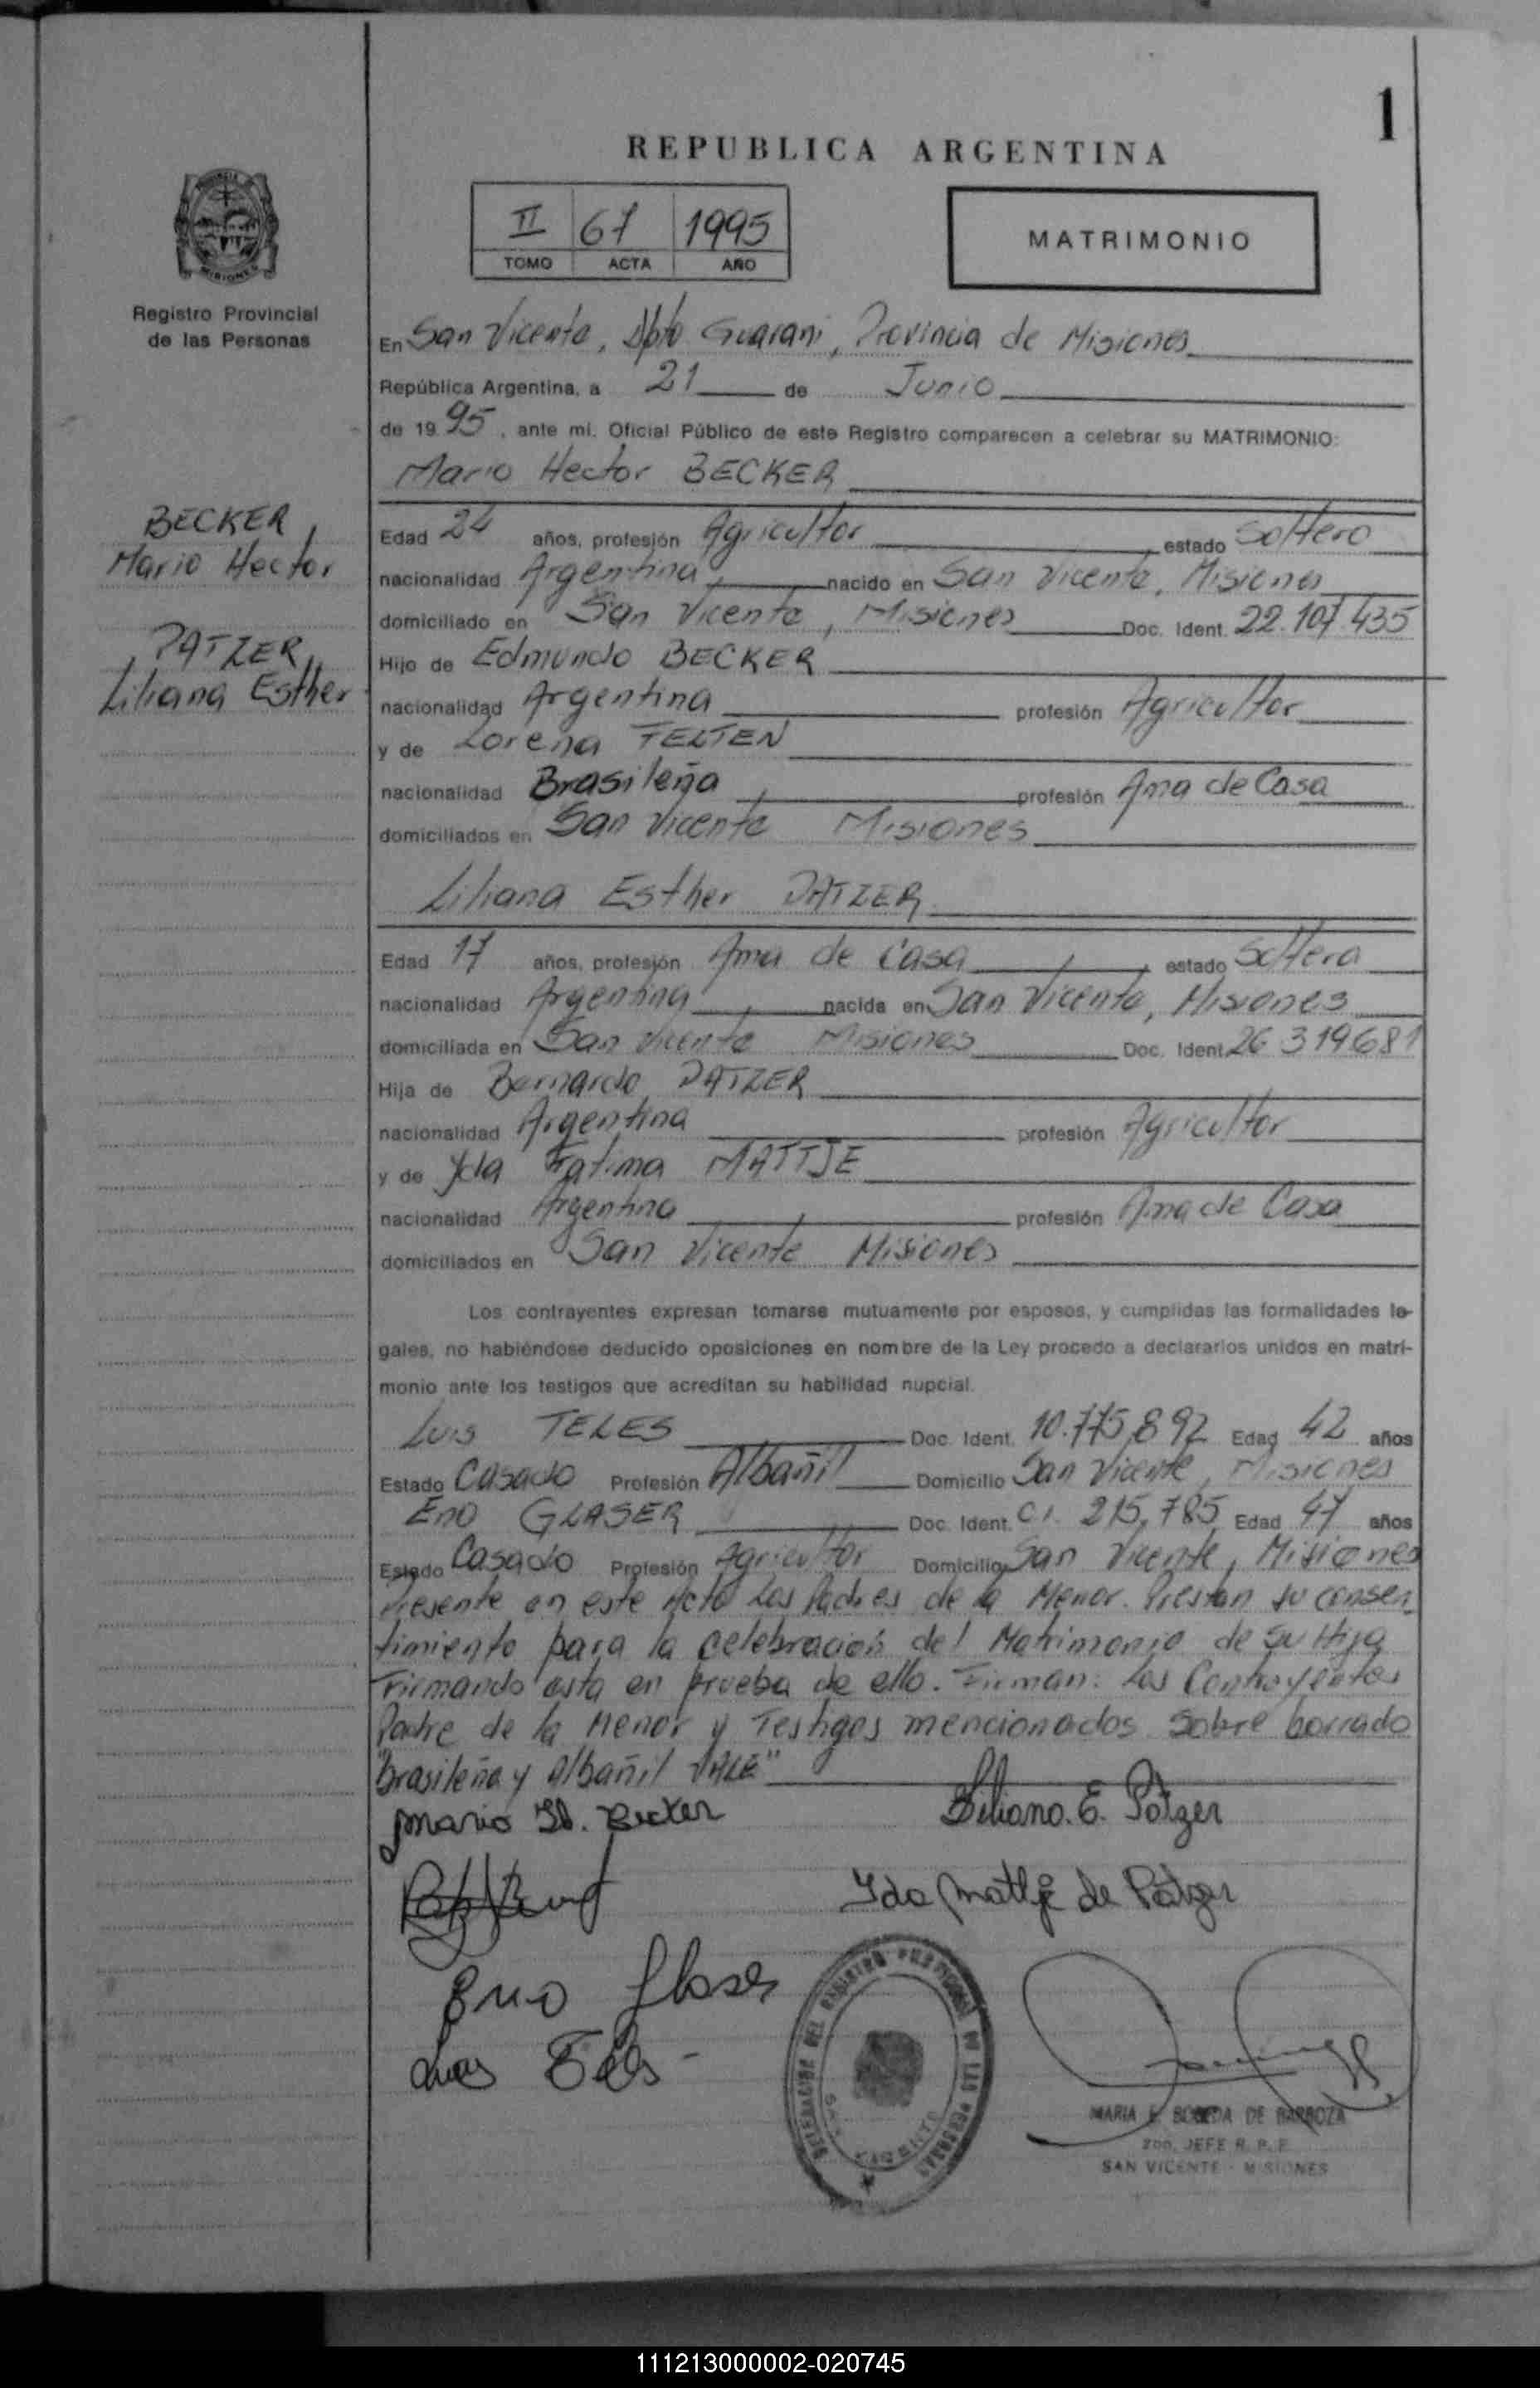 1
REPUBLICA ARGENTINA
II 67 1995
TOMO ACTA AÑO
MATRIMONIO
PROVINCIA
MISIONES
Registro Provincial
de las Personas
BECKER
Mario Hector
PATZER,
Liliana Esther
En San Vicente, Dpto Guarani, Provincia de Misiones
República Argentina, a 21 de Junio
de 1995, ante mi. Oficial Público de este Registro comparecen a celebrar su MATRIMONIO:
Mario Hector BECKER
Edad 24 años, profesión Agricultor estado Soltero
nacionalidad Argentina nacido en San Vicente, Misiones
domiciliado en San Vicente, Misiones Doc. Ident. 22.107.435
Hijo de Edmundo BECKER
nacionalidad Argentina profesión Agricultor
y de Lorena FELTEN
nacionalidad Brasileña profesión Ama de Casa
domiciliados en San Vicente Misiones
Liliana Esther PATZER
Edad 17 años, profesión Ama de Casa estado Soltera
nacionalidad Argentina nacida en San Vicente, Misiones
domiciliada en San Vicente Misiones Doc. Ident. 26 319681
Hija de Bernardo PATZER
nacionalidad Argentina profesión Agricultor
y de Yda Fatima MATTJE
nacionalidad Argentina profesión Ama de Casa
domiciliados en San Vicente Misiones
Los contrayentes expresan tomarse mutuamente por esposos, y cumplidas las formalidades le-
gales, no habiéndose deducido oposiciones en nombre de la Ley procedo a declararlos unidos en matri-
monio ante los testigos que acreditan su habilidad nupcial.
Luis TELES Doc. Ident. 10.775,892 Edad 42 años
Estado Casado Profesión Albañil Domicilio San Vicente, Misiones
Eno GLASER Doc. Ident. C.I. 215,785 Edad 47 años
Estado Casado Profesión Agricultor Domicilio San Vicente, Misiones
Presente en este Acto Los Padres de la Menor. Prestan su consen
timiento para la celebración del Matrimonio de su Hija
Firmando esta en prueba de ello. Firman: Los Contrayentes
Padre de la Menor y Testigos mencionados. Sobre borrado
"Brasileña y Albañil VALE"
Mario H. Becker
Liliana. E. Patzer
Ida Mattje de Patzer
Eno Glaser
Luis Teles
DELEGACION DEL REGISTRO PROVINCIAL DE LAS PERSONAS
SAN VICENTE
MARIA E. BOVEDA DE BARBOZA
JEFE R. P. P.
SAN VICENTE - MISIONES
111213000002-020745